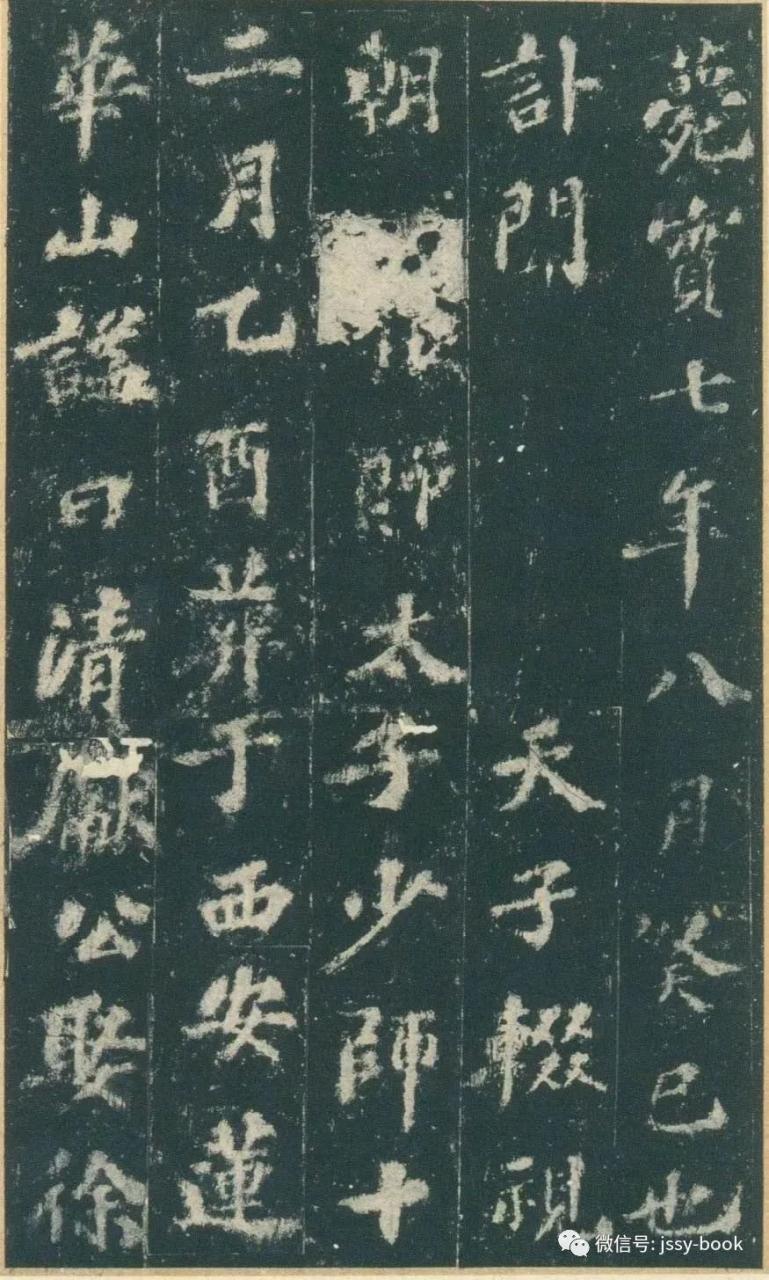 薨實七年八月癸巳也
訃聞天子輟視
朝師太子少師十
二月乙酉葬于西安蓮
華山謚曰清獻公娶徐
微信号: jssy-book